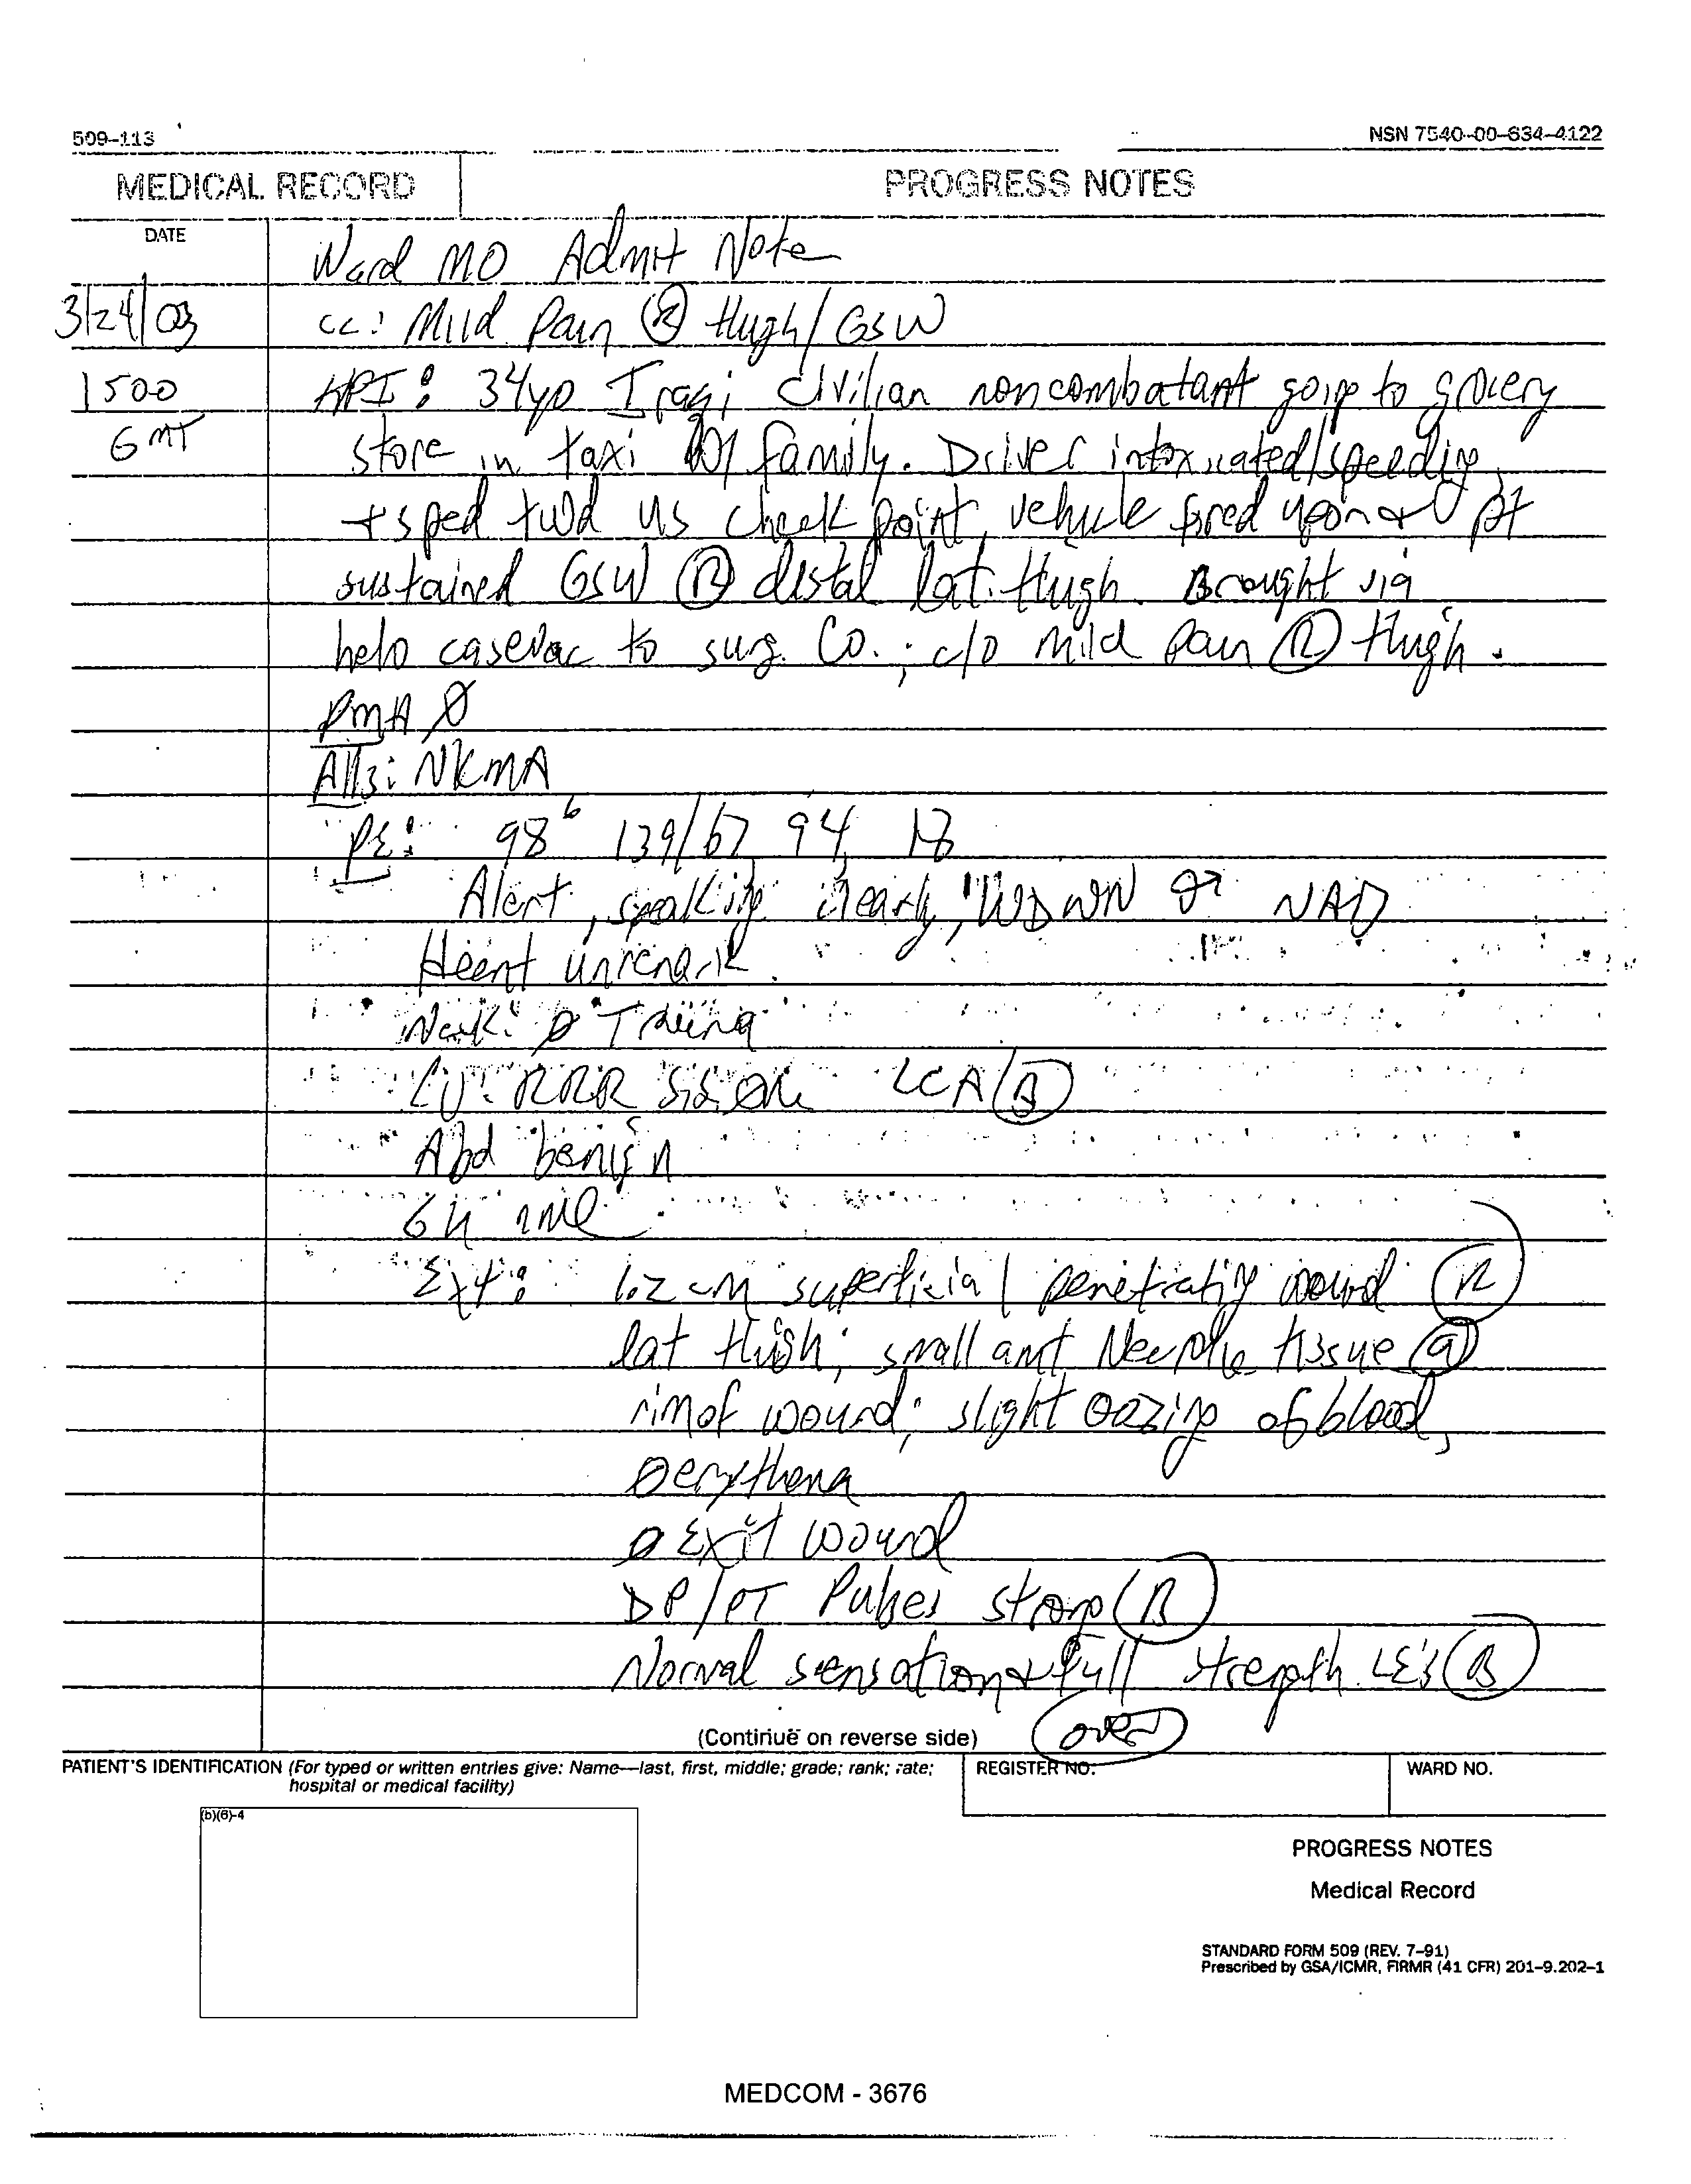 509-113
NSN 7540-00-634-4122
MEDICAL RECORD
PROGRESS NOTES
DATE
Ward MO Admit Note
3/24/03
cc: Mild Pain Ⓡ thigh/GSW
1500
HPI: 34yo Iraqi civilian noncombatant going to grocery
GMT
store in taxi w/ family. Driver intoxicated/speeding
+ sped twd US check point, vehicle fired upon & pt
sustained GSW Ⓡ distal lat. thigh. Brought via
helo casevac to surg. Co.; c/o mild pain Ⓡ thigh.
PMH Ø
All's: NKMA
PE: 98⁶ 139/67 94 18
Alert, speaking clearly, WDWN ♂ NAD
Heent unremark
Neck: Ø
CV: RRR LCA Ⓑ
Abd benign
GU nml
Ext: 1.2 cm superficial penetrating wound Ⓡ
lat thigh; small amt Necrotic tissue @
rim of wound; slight oozing of blood,
Ø erythema
Ø Exit wound
DP/PT Pulses strong Ⓑ
Normal sensation & full strength LE's Ⓑ
(Continue on reverse side)
over
PATIENT'S IDENTIFICATION (For typed or written entries give: Name—last, first, middle; grade; rank; rate;
hospital or medical facility)
REGISTER NO.
WARD NO.
(b)(6)-4
PROGRESS NOTES
Medical Record
STANDARD FORM 509 (REV. 7-91)
Prescribed by GSA/ICMR, FIRMR (41 CFR) 201-9.202-1
MEDCOM - 3676